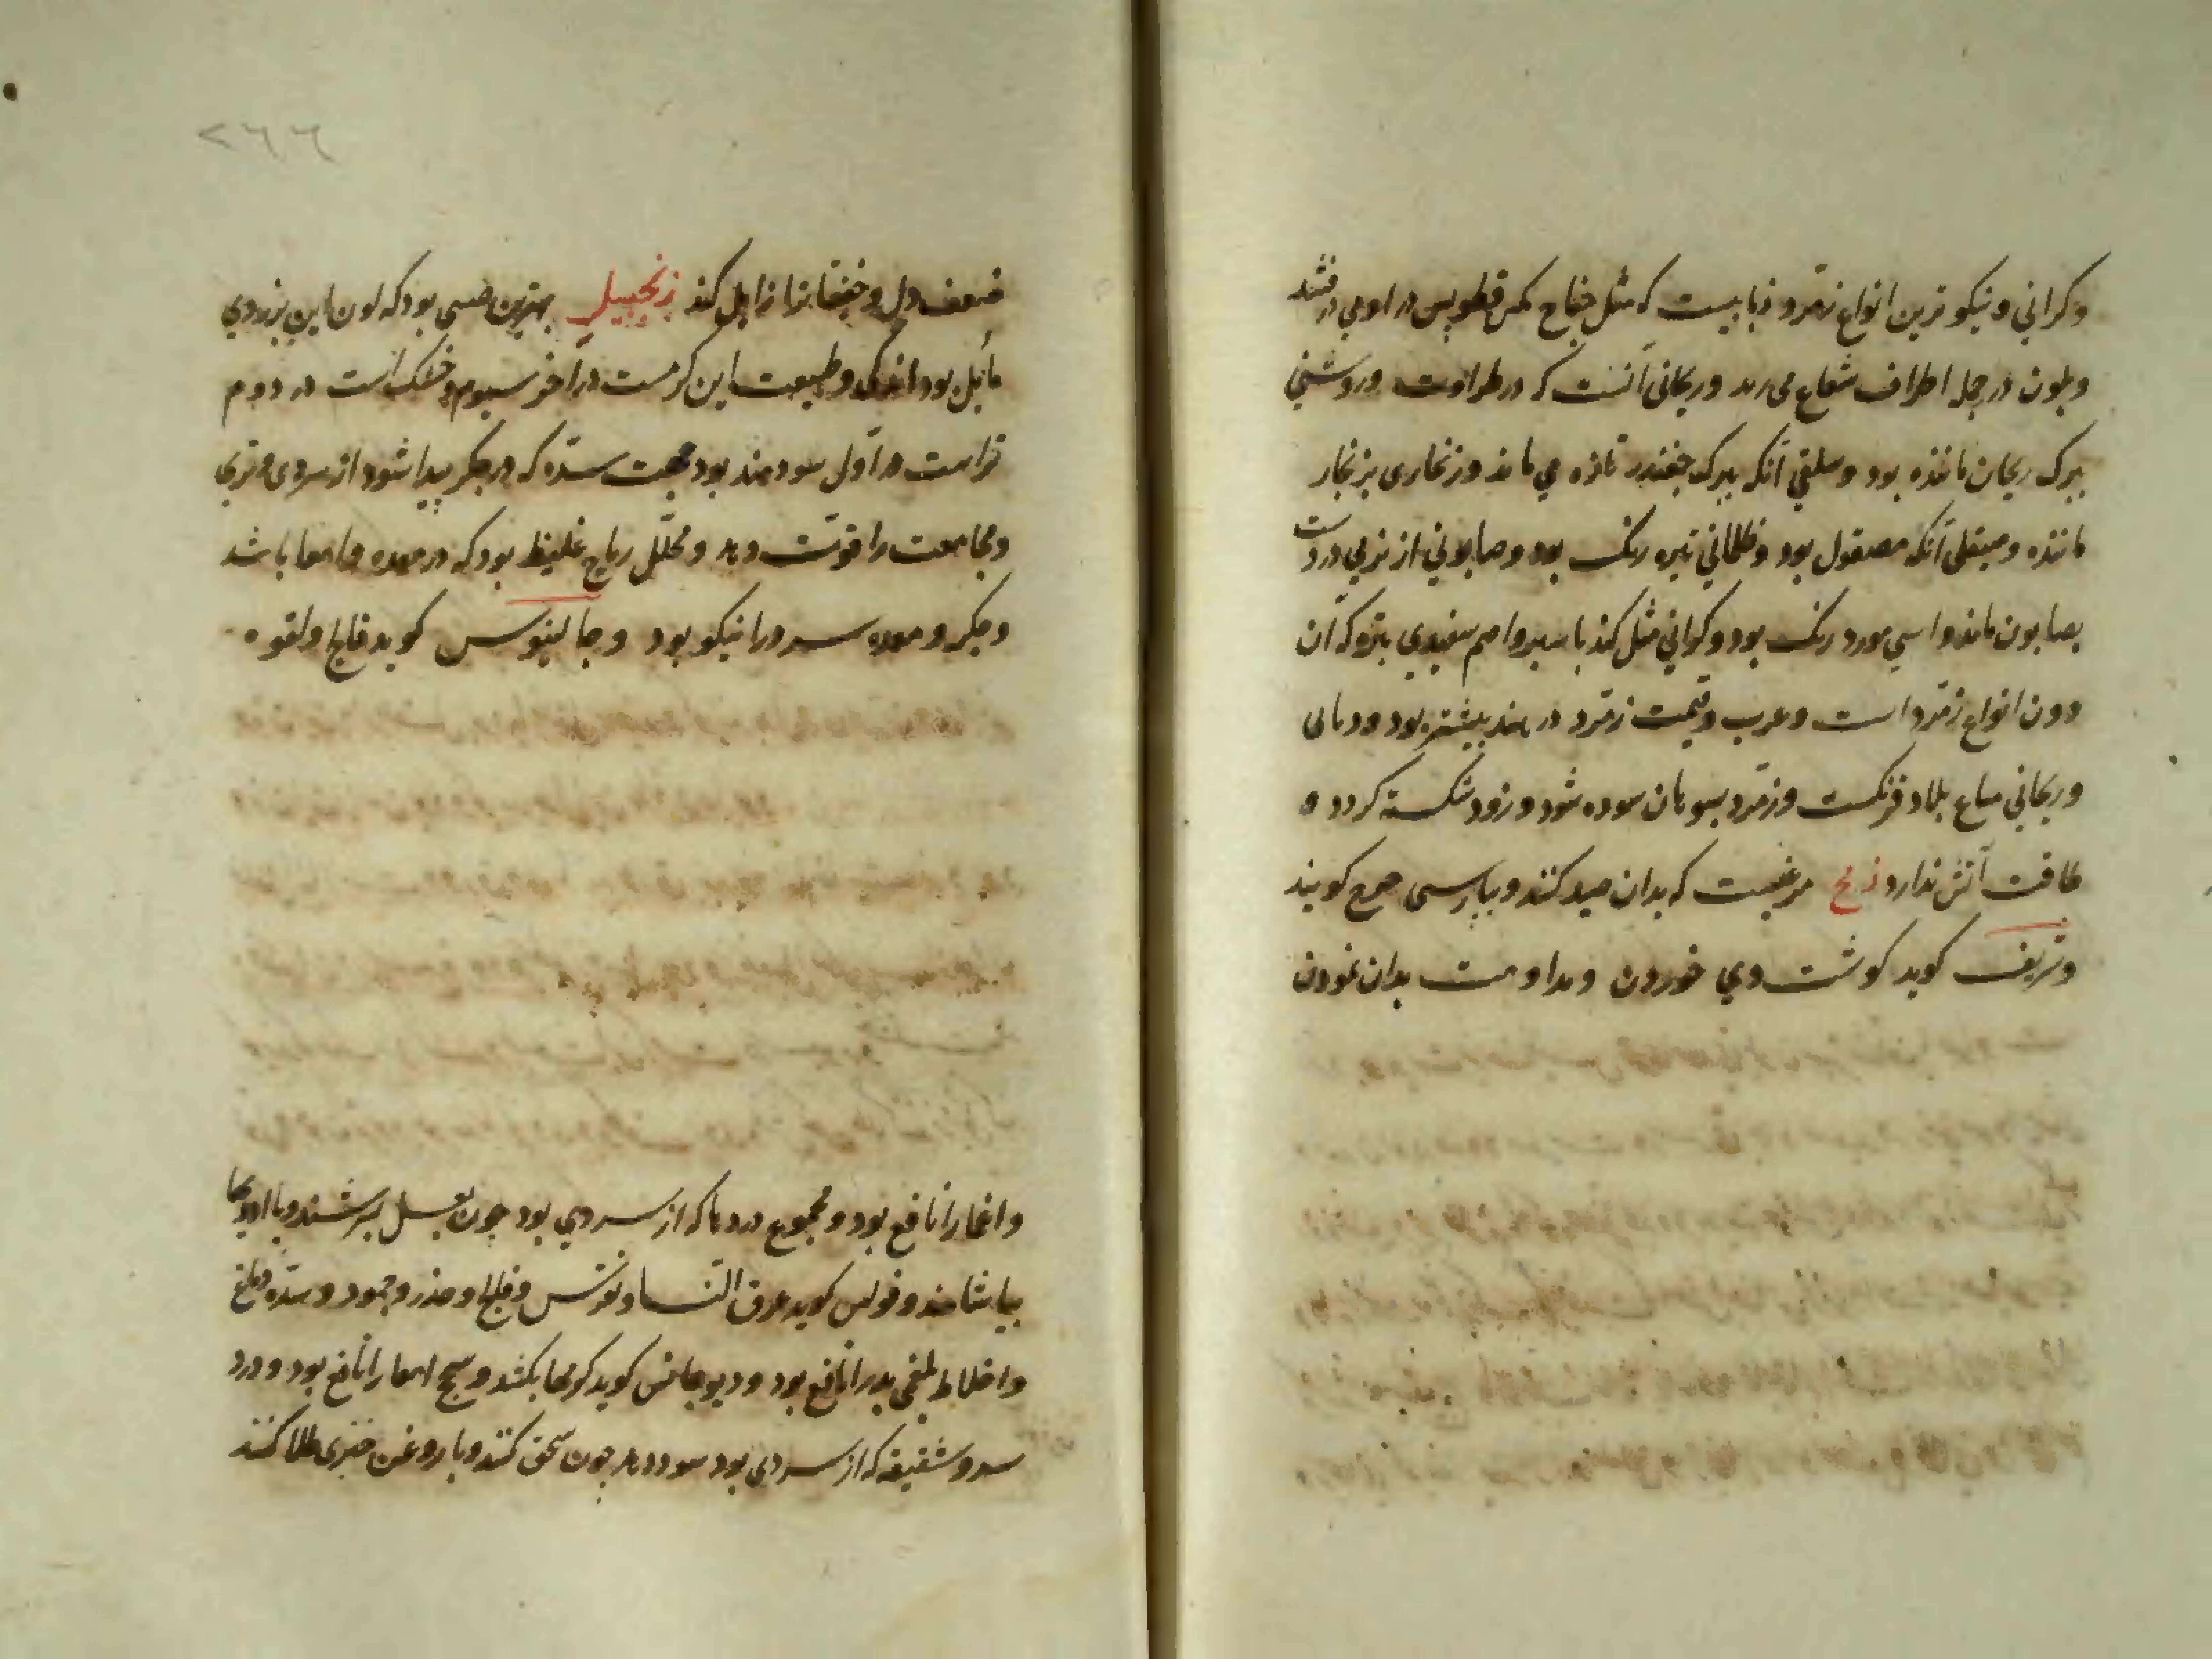 وکراثی و نیکو ترین انواع زمرد ذبابیست که مثل جناح مکس در اوبی درفشد
وبلون در جمله اطراف شعاع می زند وریحانی آنست که در طراوت وروشنی
ببرک ریحان ماننده بود وسلقی آنکه ببرک چغندر تازه می ماند وزنجاری بزنجار
ماننده وصیقلی آنکه مصقول بود وظلمانی تیره رنک بود وصابونی از نرمی
بصابون ماند واسی مورد رنک بود وکراثی مثل کندنا سیر واصم سفیدی تیره که آن
دون انواع زمرد است وعرب وقیمت زمرد در هند بیشتر بود
وریحانی متاع بلاد فرنکست وزمرد بسوهان سوده شود وزود شکسته کردد و
طاقت آتش ندارد زمج مرغیست که بدان صید کنند وبپارسی کویند
وشریف کوید کوشت وی خوردن ومداومت بدان نمودن
۲۶۶
ضعف دل وخفقانرا زایل کند زنجبیل بهترین چینی بود که لون این بزردی
مایل بود اندکی وطبیعت این کرمست در آخر سیوم وخشک است در دوم
تراست در اول سودمند بود جهت سده که در جکر پیدا شود از سردی وتری
ومجامعت را قوت دهد ومحلل ریاح غلیظ بود که در معده وامعا باشد
وجکر ومعده سرد را نیکو بود وجالینوس کوید فالج ولقوه
را نافع بود ومجموع دردها که از سردی بود چون بعسل بسرشند وبا
بیاشامند وفولس کوید عرق النسا ونقرس وفالج وخدر وجمود وسده دماغ
واخلاط بلغمی بد را نافع بود کوید کرمها بکشد وسحج امعا را نافع بود ودرد
سر وشقیقه که از سردی بود سود دهد چون سحق کنند وبا روغن خیری طلا کنند